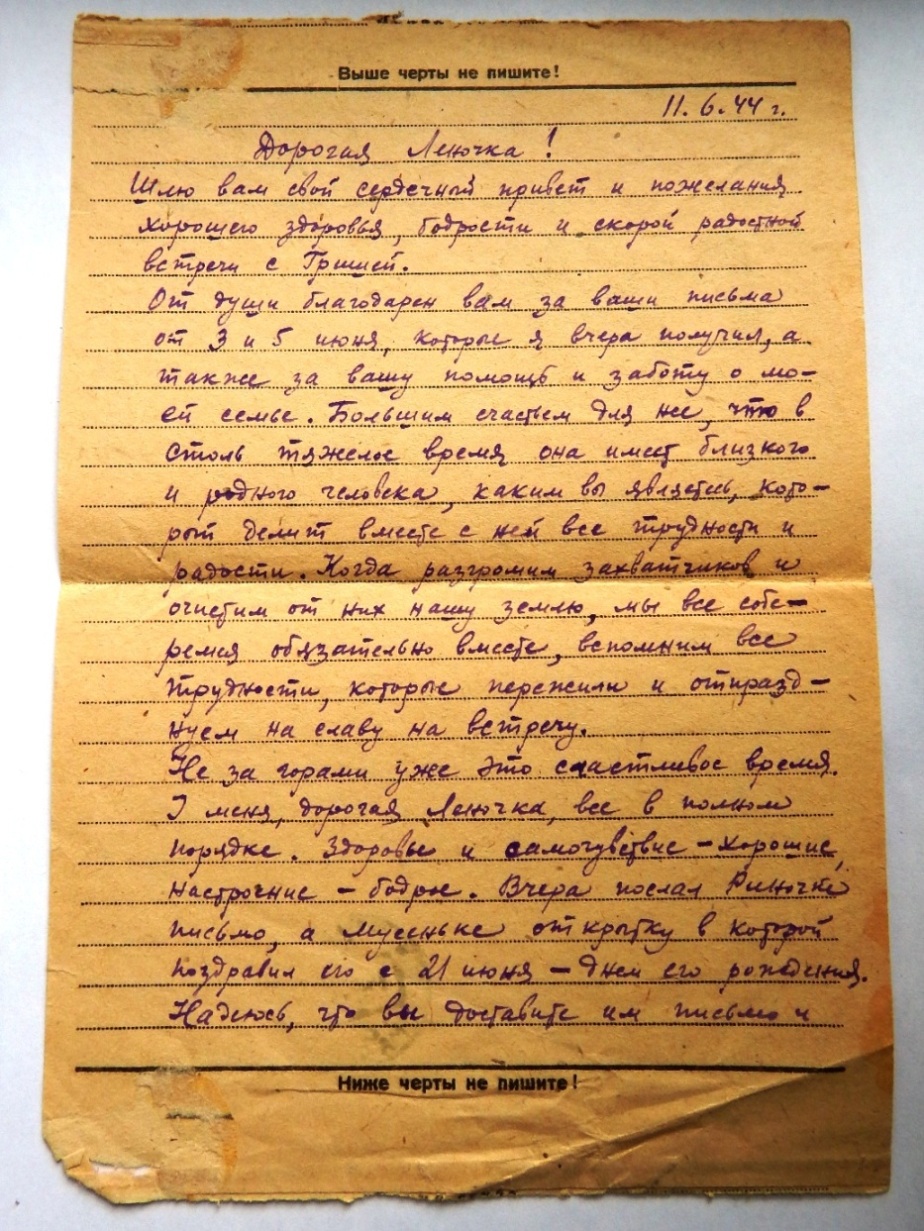 Выше черты не пишите!
11. 6. 44 г.
Дорогая Леночка!
Шлю вам свой сердечный привет и пожелания
хорошего здоровья, бодрости и скорой радостной
встречи с Гришей.
От души благодарен вам за ваши письма
от 3 и 5 июня, которые я вчера получил, а
также за вашу помощь и заботу о мо-
ей семье. Большим счастьем для нее, что в
столь тяжелое время она имеет близкого
и родного человека, каким вы являетесь, кото-
рый делит вместе с ней все трудности и
радости. Когда разгромим захватчиков и
очистим от них нашу землю, мы все собе-
ремся обязательно вместе, вспомним все
трудности, которые пережили и отпразд-
нуем на славу на встречу.
Не за горами уже это счастливое время.
У меня, дорогая Леночка, все в полном
порядке. Здоровье и самочувствие - хорошие,
настроение - бодрое. Вчера послал Риночке
письмо, а Мусеньке открытку в которой
поздравил его с 21 июня - днем его рождения.
Надеюсь, что вы доставите им письмо и
Ниже черты не пишите!